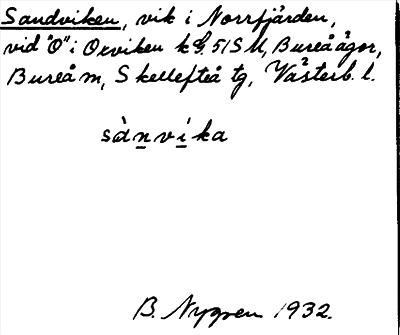 Sandviken, vik i Norrfjärden,
vid "O" i Oxviken k bl. 51SM, Bureå ägor,
Bureå m, Skellefteå tg, Västerb. l.
sànvíka
B. Nygren 1932.